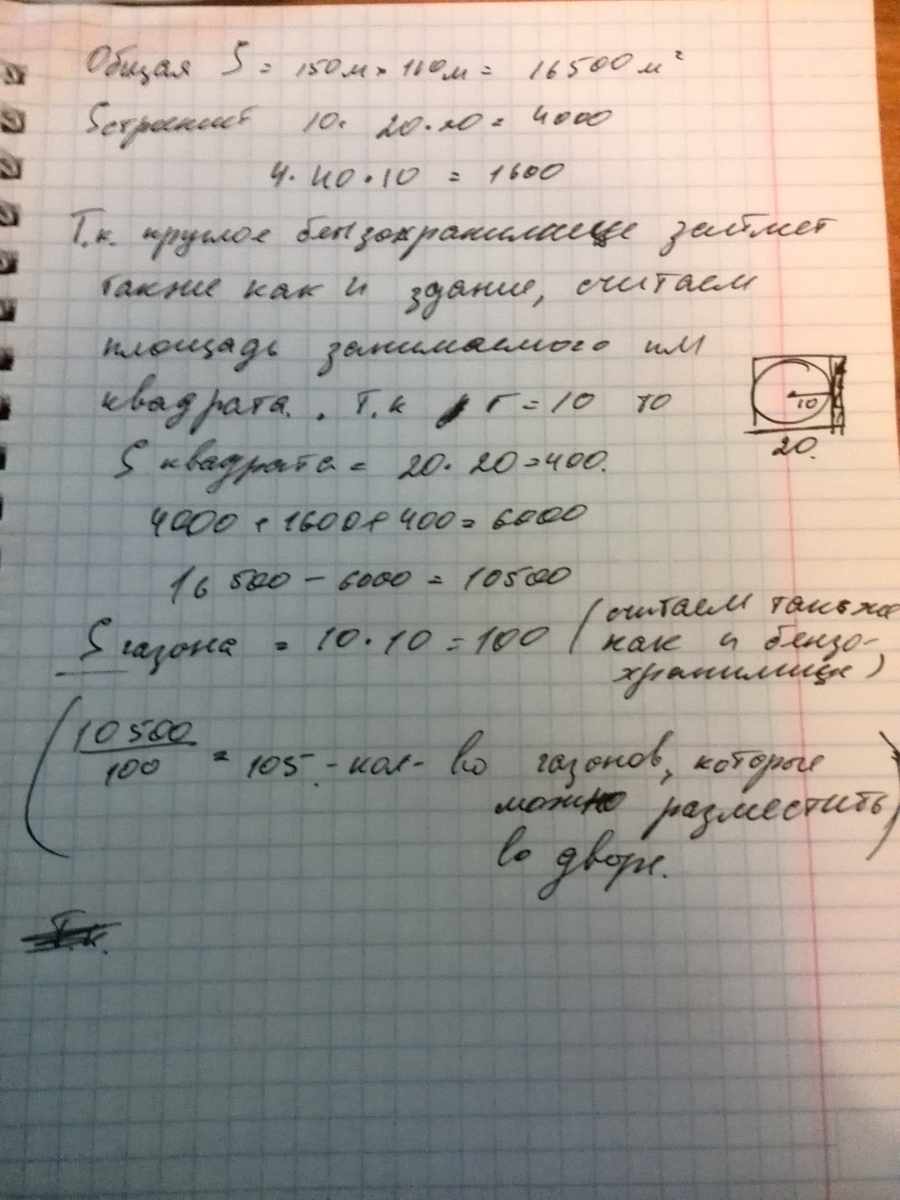 Общая S = 150м × 110м = 16500м²
Sстроений 10 · 20 · 20 = 4000
4 · 40 · 10 = 1600
Т.к. круглое бензохранилище займет
также как и здание, считаем
площадь занимаемого им
квадрата. Т.к r = 10 то
10
20.
S квадрата = 20 · 20 = 400.
4000 + 1600 + 400 = 6000
16 500 - 6000 = 10500
S газона = 10 · 10 = 100 (считаем также
как и бензо-
хранилище)
(10500/100 = 105 - кол-во газонов, которые
можно разместить
во дворе.)
Т.к.